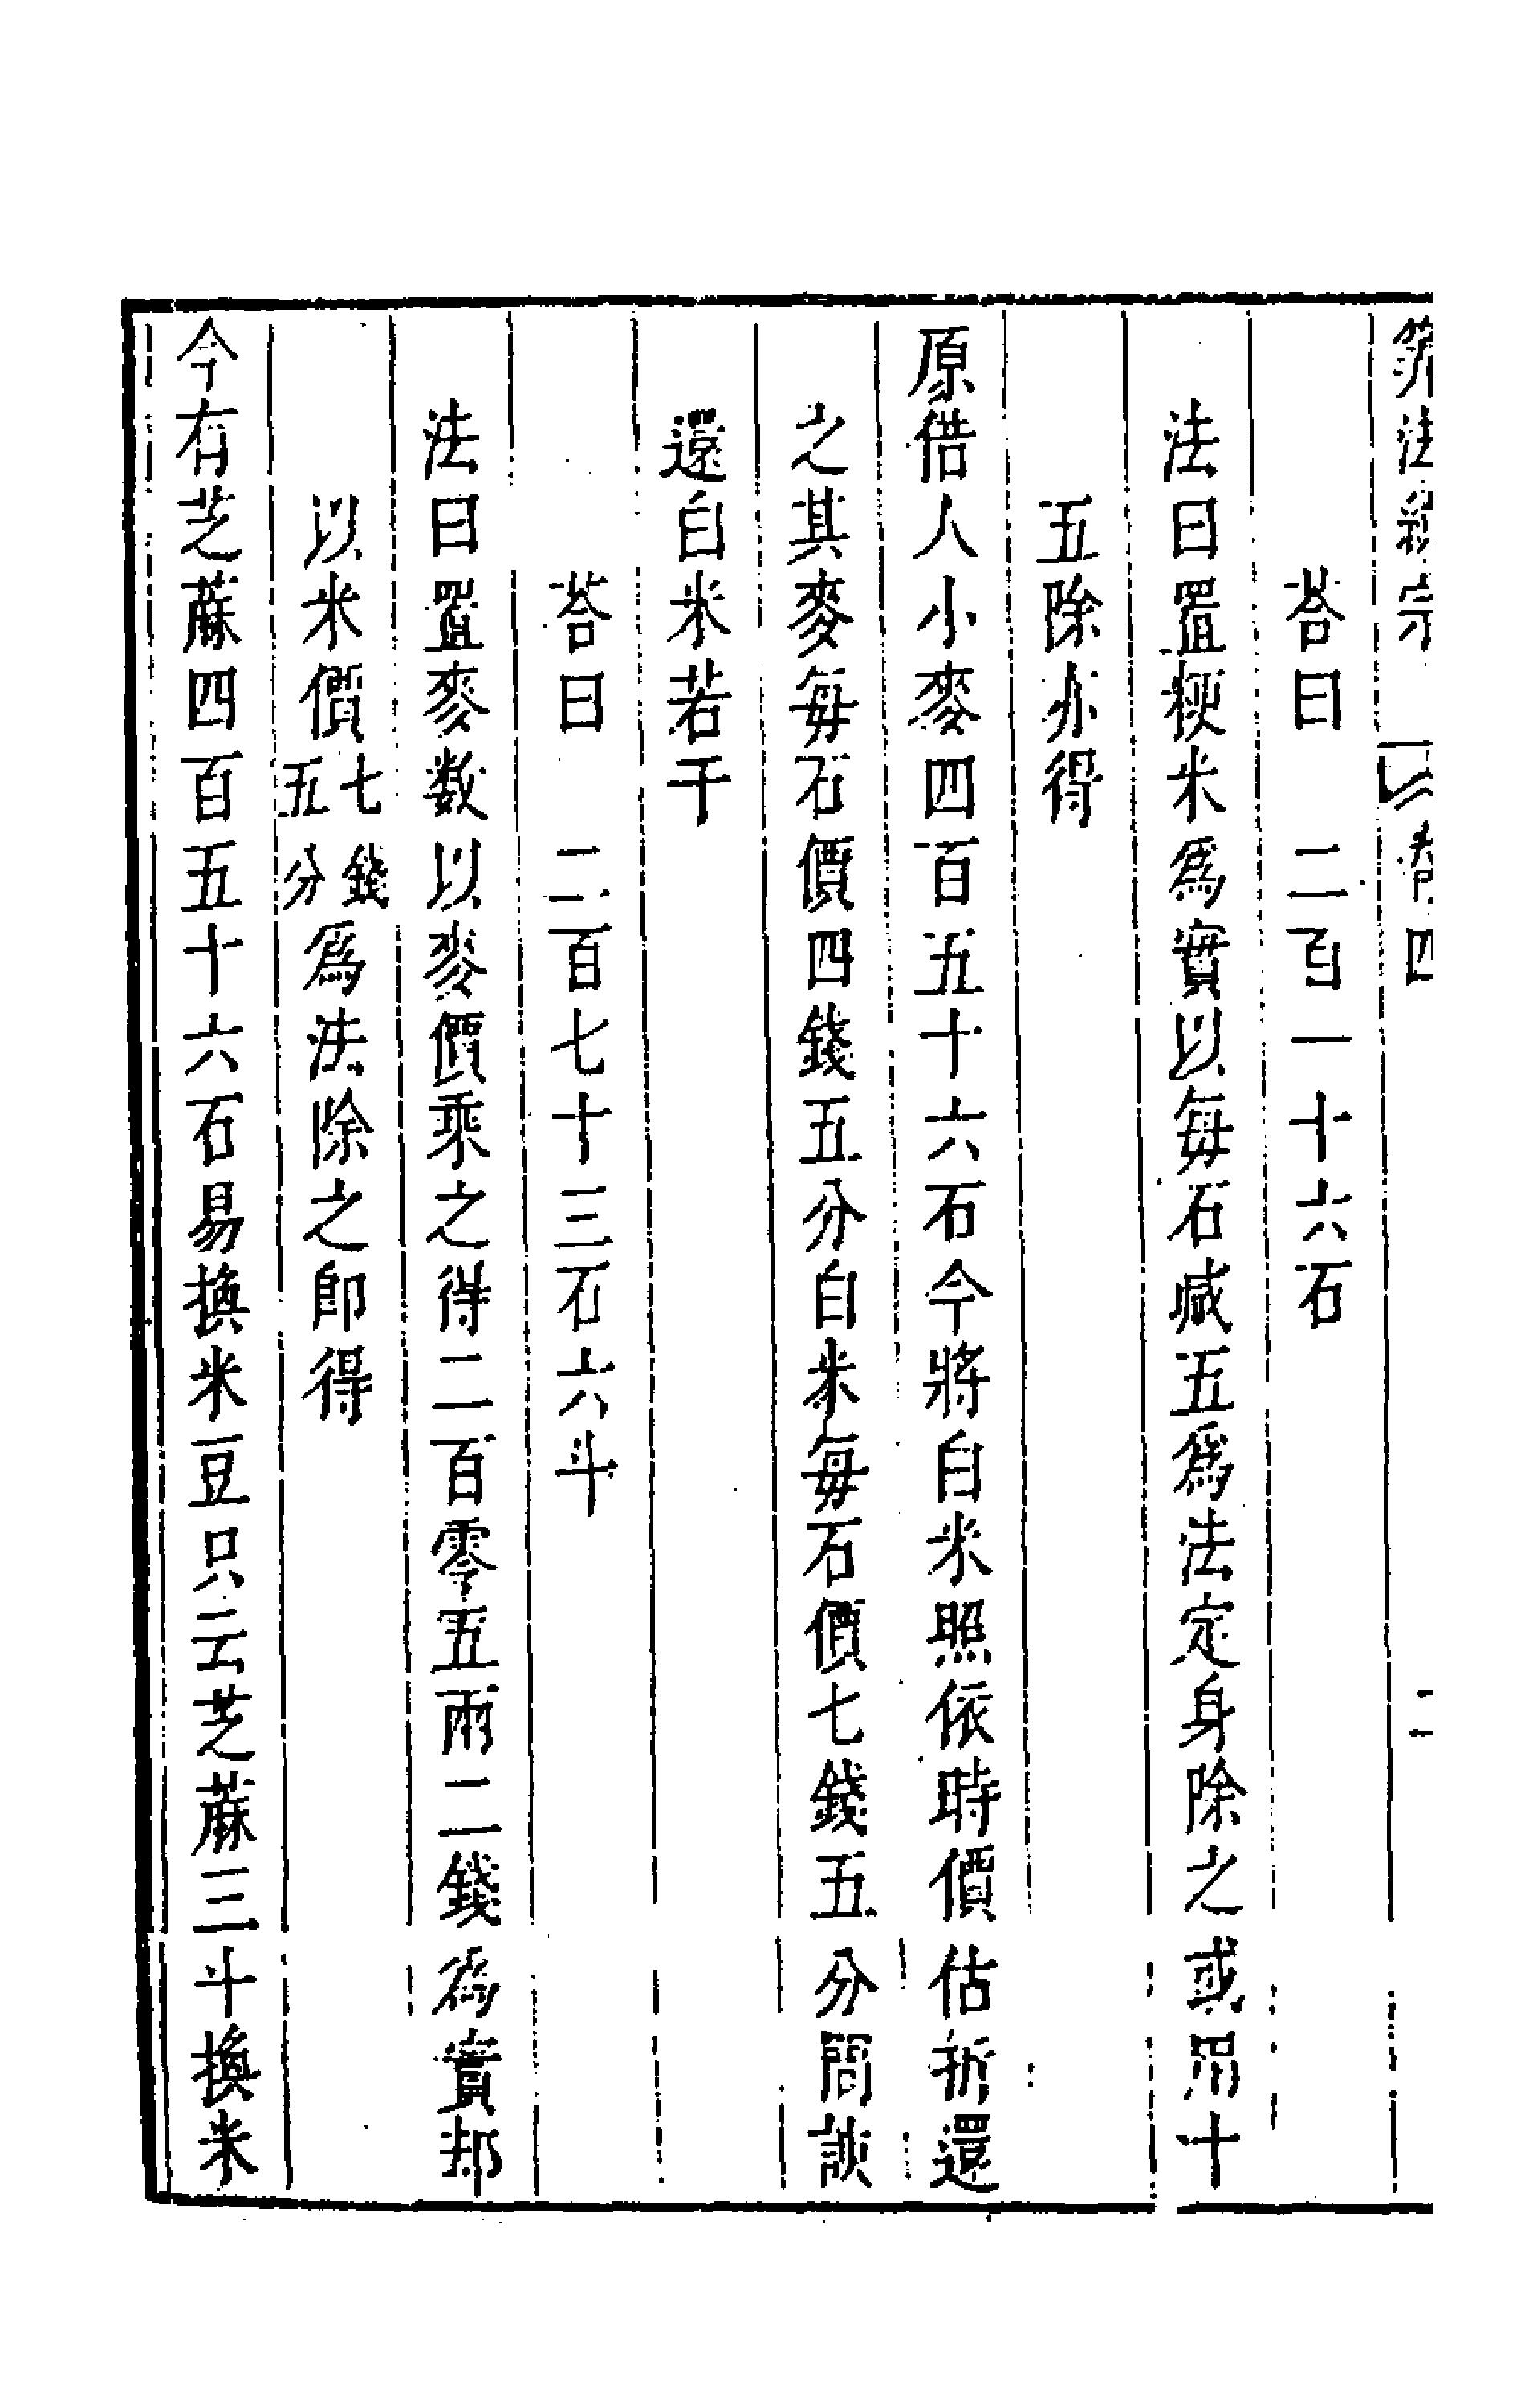 算法統宗 卷四 二
荅曰 二百一十六石
法曰置粳米爲實以每石減五爲法定身除之或用十
五除亦得
原借人小麥四百五十六石今將白米照依時價估折還
之其麥每石價四錢五分白米每石價七錢五分問該
還白米若干
荅曰 二百七十三石六斗
法曰置麥数以麥價乘之得二百零五兩二錢爲實却
以米價七錢五分爲法除之卽得
今有芝蔴四百五十六石易換米豆只云芝蔴三斗換米